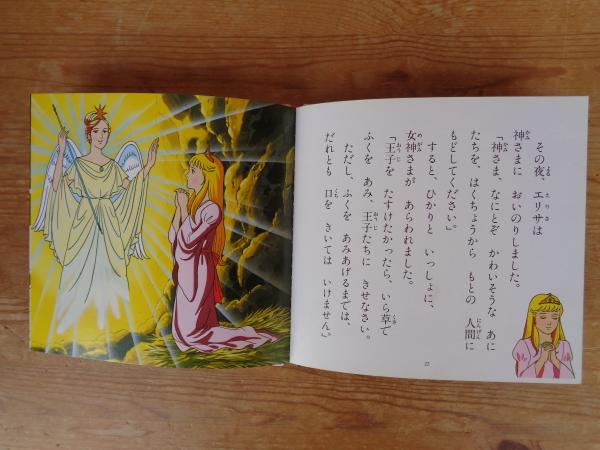 その夜、エリサは
神さまに おいのりしました。
「神さま、なにとぞ かわいそうな あに
たちを、はくちょうから もとの 人間に
もどしてください」
すると、ひかりと いっしょに、
女神さまが あらわれました。
「王子を たすけたかったら、いら草で
ふくを あみ、王子たちに きせなさい。
ただし、ふくを あみあげるまでは、
だれとも 口を きいては いけません」
27